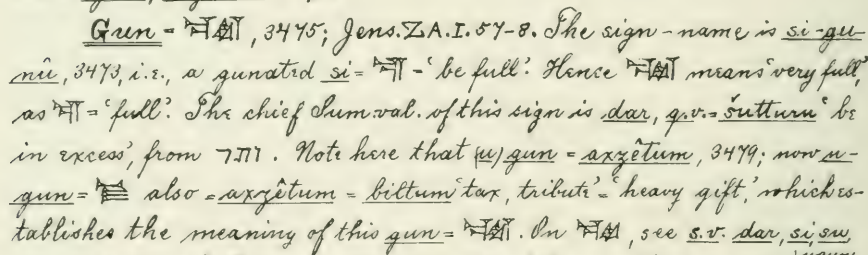 Gun = 𒁯, 3475; Jens. ZA. I. 57-8. The sign-name is si-gu-
nû, 3473, i.e., a gunated si = 𒋛 = 'be full'. Hence 𒁯 means 'very full',
as 𒋛 = 'full'. The chief Sum. val. of this sign is dar, q.v. = šutturu 'be
in excess', from ותר. Note here that (u) gun = axzêtum, 3479; now u-
gun = also = axzêtum = biltum 'tax, tribute' = 'heavy gift,' which es-
tablishes the meaning of this gun = 𒁯. On 𒁯, see s.v. dar, si, su,